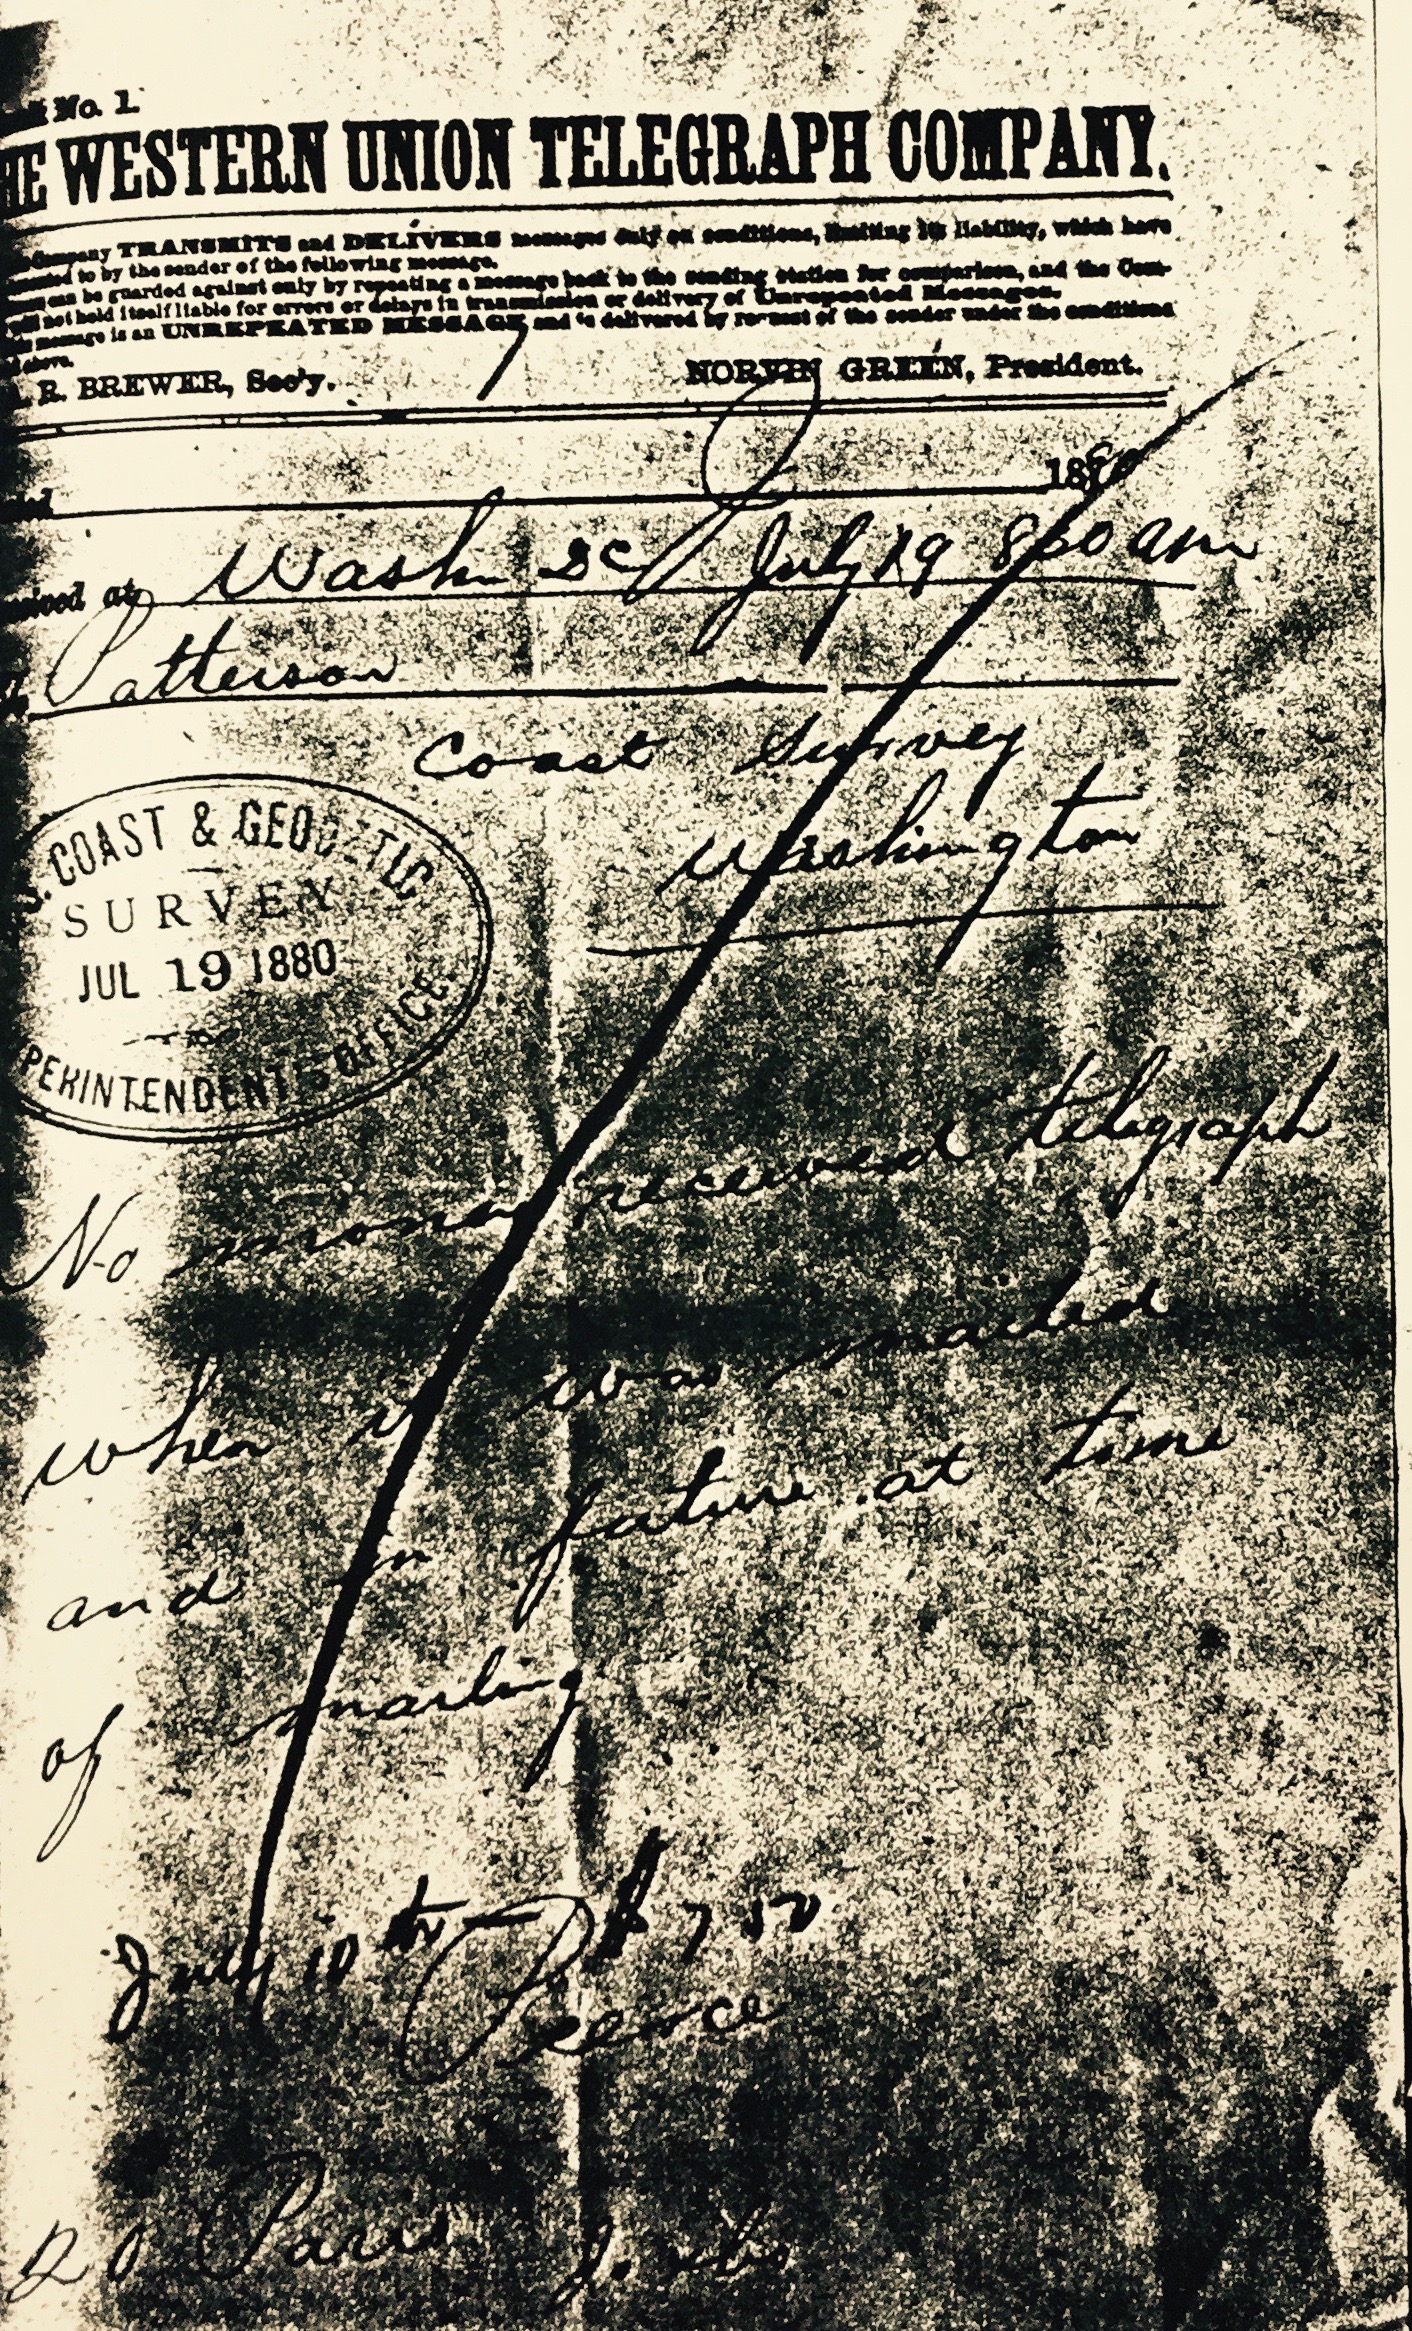 No. 1.
HE WESTERN UNION TELEGRAPH COMPANY.
Company TRANSMITS and DELIVERS messages only on conditions, limiting its liability, which have
to by the sender of the following message.
can be guarded against only by repeating a message back to the sending station for comparison, and the Com-
will not hold itself liable for errors or delays in transmission or delivery of Unrepeated Messages.
message is an UNREPEATED MESSAGE and is delivered by request of the sender under the conditions
above.
R. BREWER, Sec'y.
NORVIN GREEN, President.
1880
at Wash DC July 19 am
Patterson
Coast Survey
Washington
COAST & GEODETIC
SURVEY
JUL 19 1880
PERINTENDENT'S OFFICE.
No money received telegraph
when it was mailed
and in future at time
of mailing
July 10th $750
Peirce
Paris